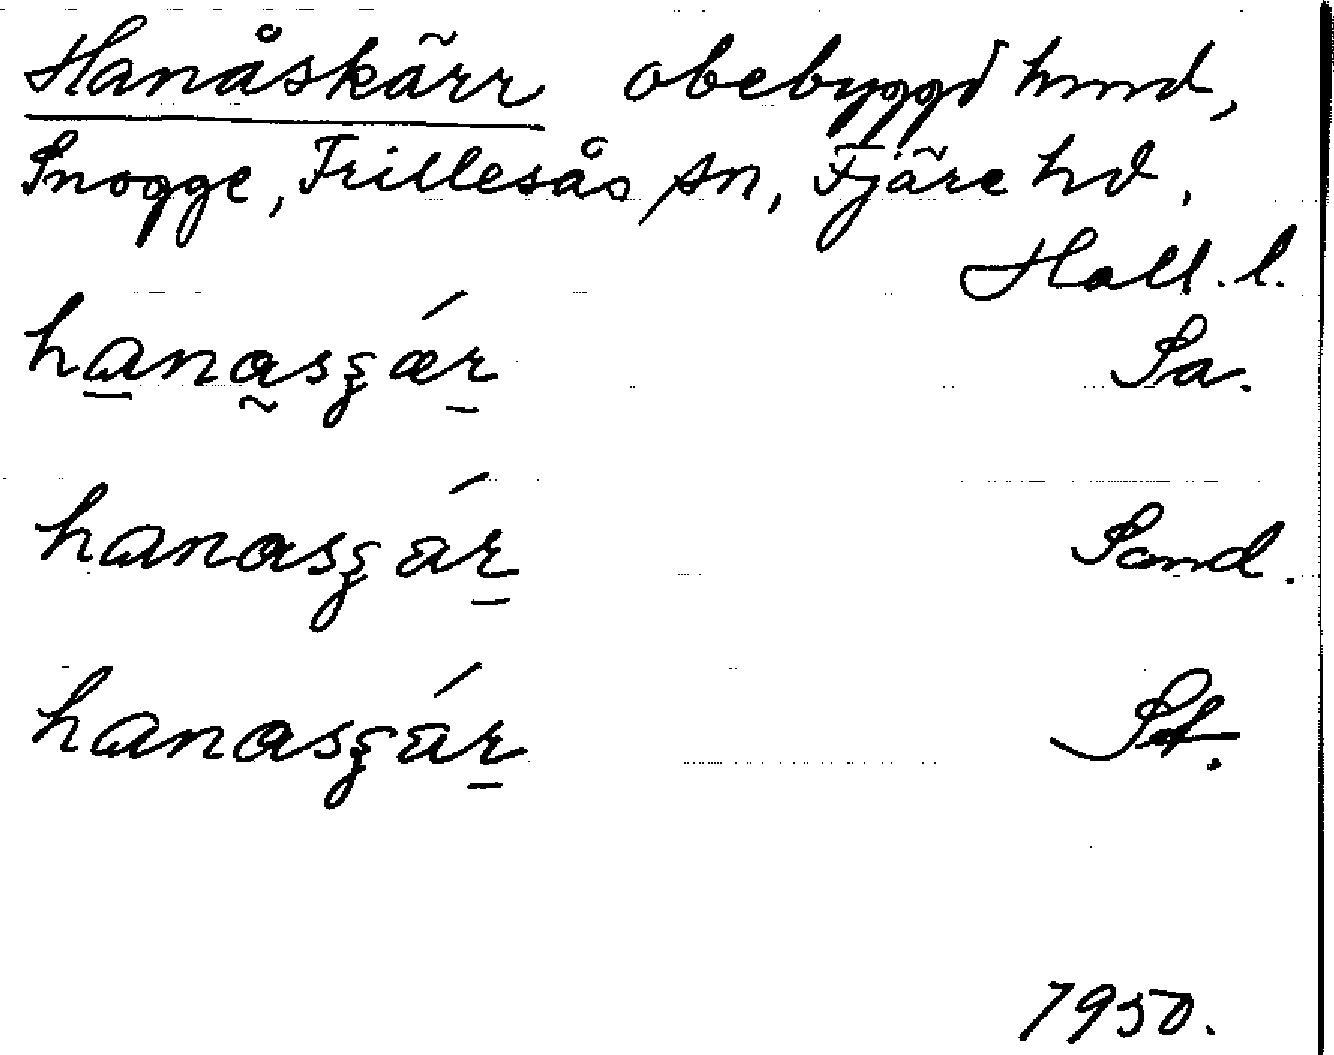 Hanåskärr obebyggd hmmd,
Snogge, Frillesås sn, Fjäre hd.
Hall. l.
hanasʒǽr Sa.
hanasʒár Sand.
hanasʒár St.
1950.